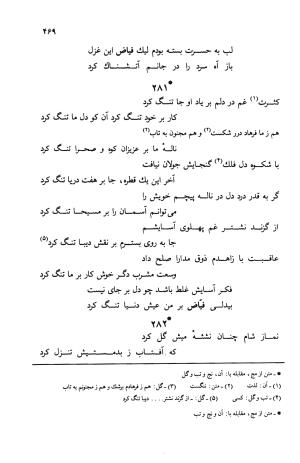 ۴۶۹
لب به حسرت بسته بودم لیك فیاض این غزل
باز آه سرد را در جانم آتشناك کرد
*۲۸۱
کثرت(۱) غم در دلم بر یاد او جا تنگ کرد
کار بر خود تنگ کرد آن کو دل ما تنگ کرد
هم ز ما فرهاد درر شکست(۲) و هم مجنون به تاب(۳)
نالهٔ ما بر عزیزان کوه و صحرا تنگ کرد
با شکوه دل فلك(۴) گنجایش جولان نیافت
آخر این یك قطره، جا بر هفت دریا تنگ کرد
گر به قدر درد دل در ناله پیچم خویش را
می‌توانم آسمان را بر مسیحا تنگ کرد
از گزند نشتر غم پهلوی آسایشم
جا به روی بسترم بر نقش دیبا تنگ کرد(۵)
عاقبت با زاهدم ذوق مدارا صلح داد
وسعت مشرب دگر خوش کار بر ما تنگ کرد
فکر آسایش غلط باشد چو دل بر جای نیست
بیدلی فیّاض بر من عیش دنیا تنگ کرد
*۲۸۲
نماز شام چنان نشئهٔ میش گل کرد
که آفتاب ز بدمستیش تنزل کرد
* ـ متن از مج، مقابله با: آن، نج و تب و گل
(۱) ـ آن: لذت (۲) ـ متن: تنگست (۳) ـ گل: هم ز فرهادم برشك و هم ز مجنونم به تاب
(۴) ـ تب و گل: کسی (۵) ـ گل: از گزند نشتر ... دیبا تنگ کرد
* ـ متن از مج، مقابله با: آن و نج و تب